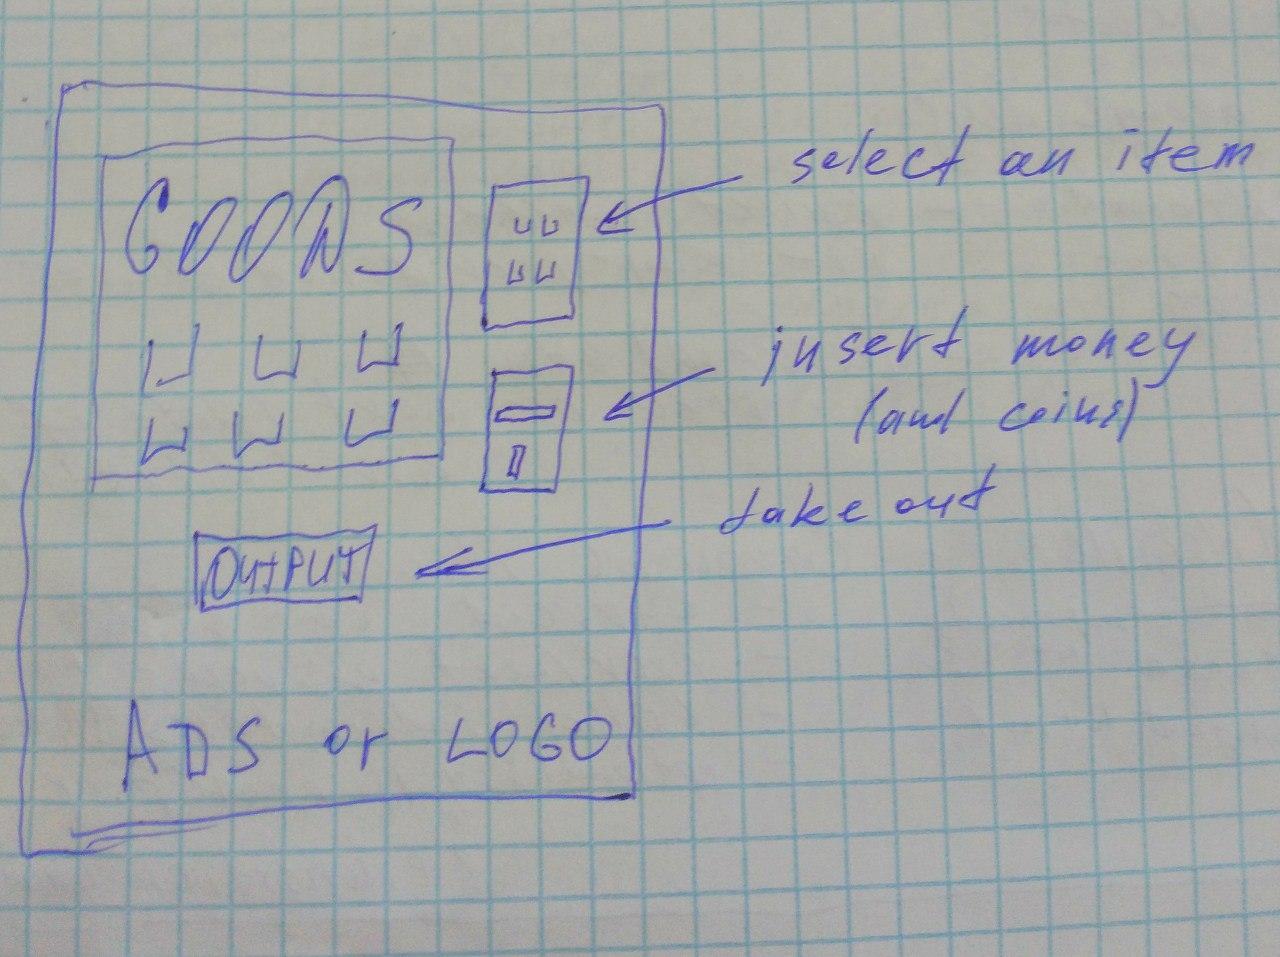 GOODS
select an item
insert money
(and coins)
take out
OUTPUT
ADS or LOGO